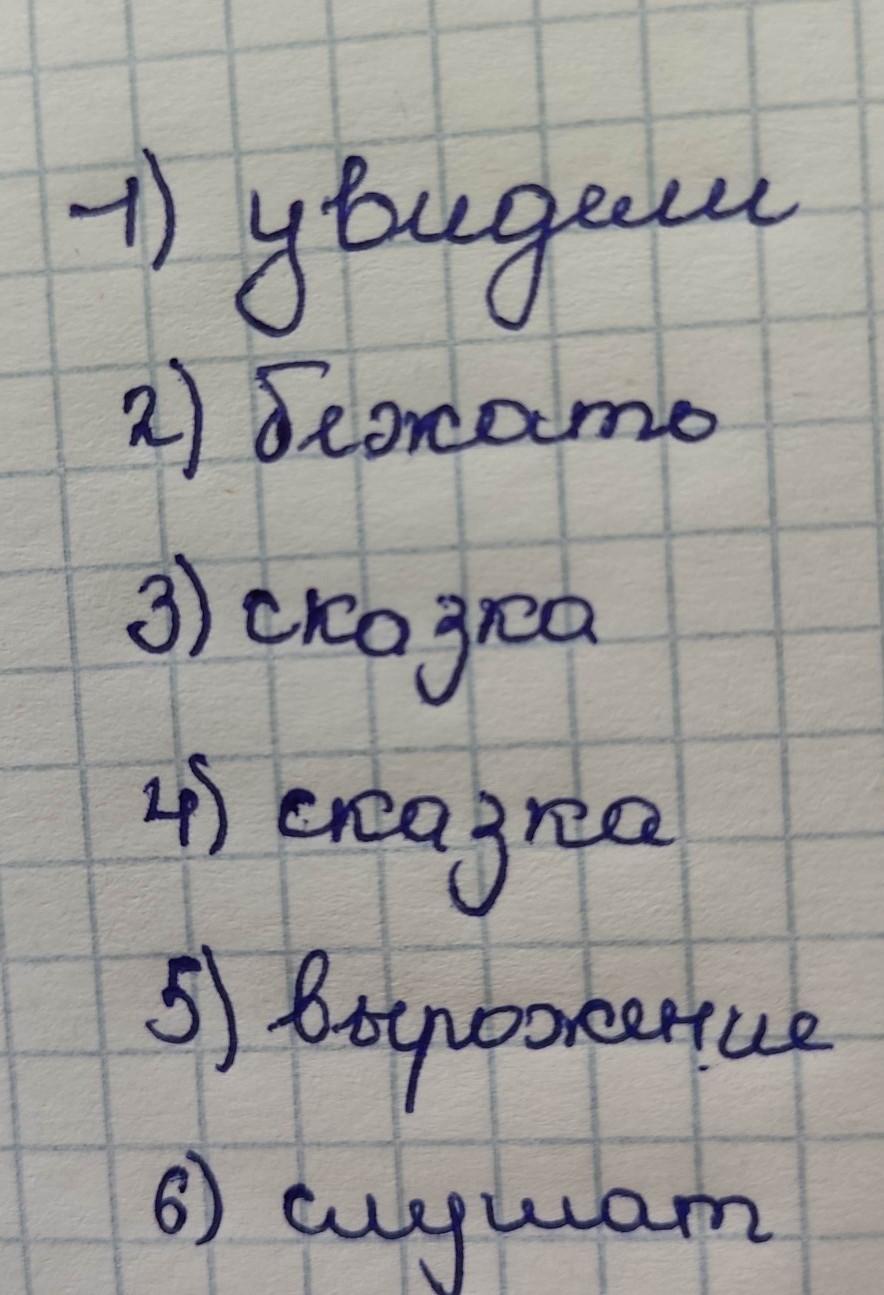 1) увидели
2) бежать
3) сказка
4) сказка
5) вырожение
6) слушат